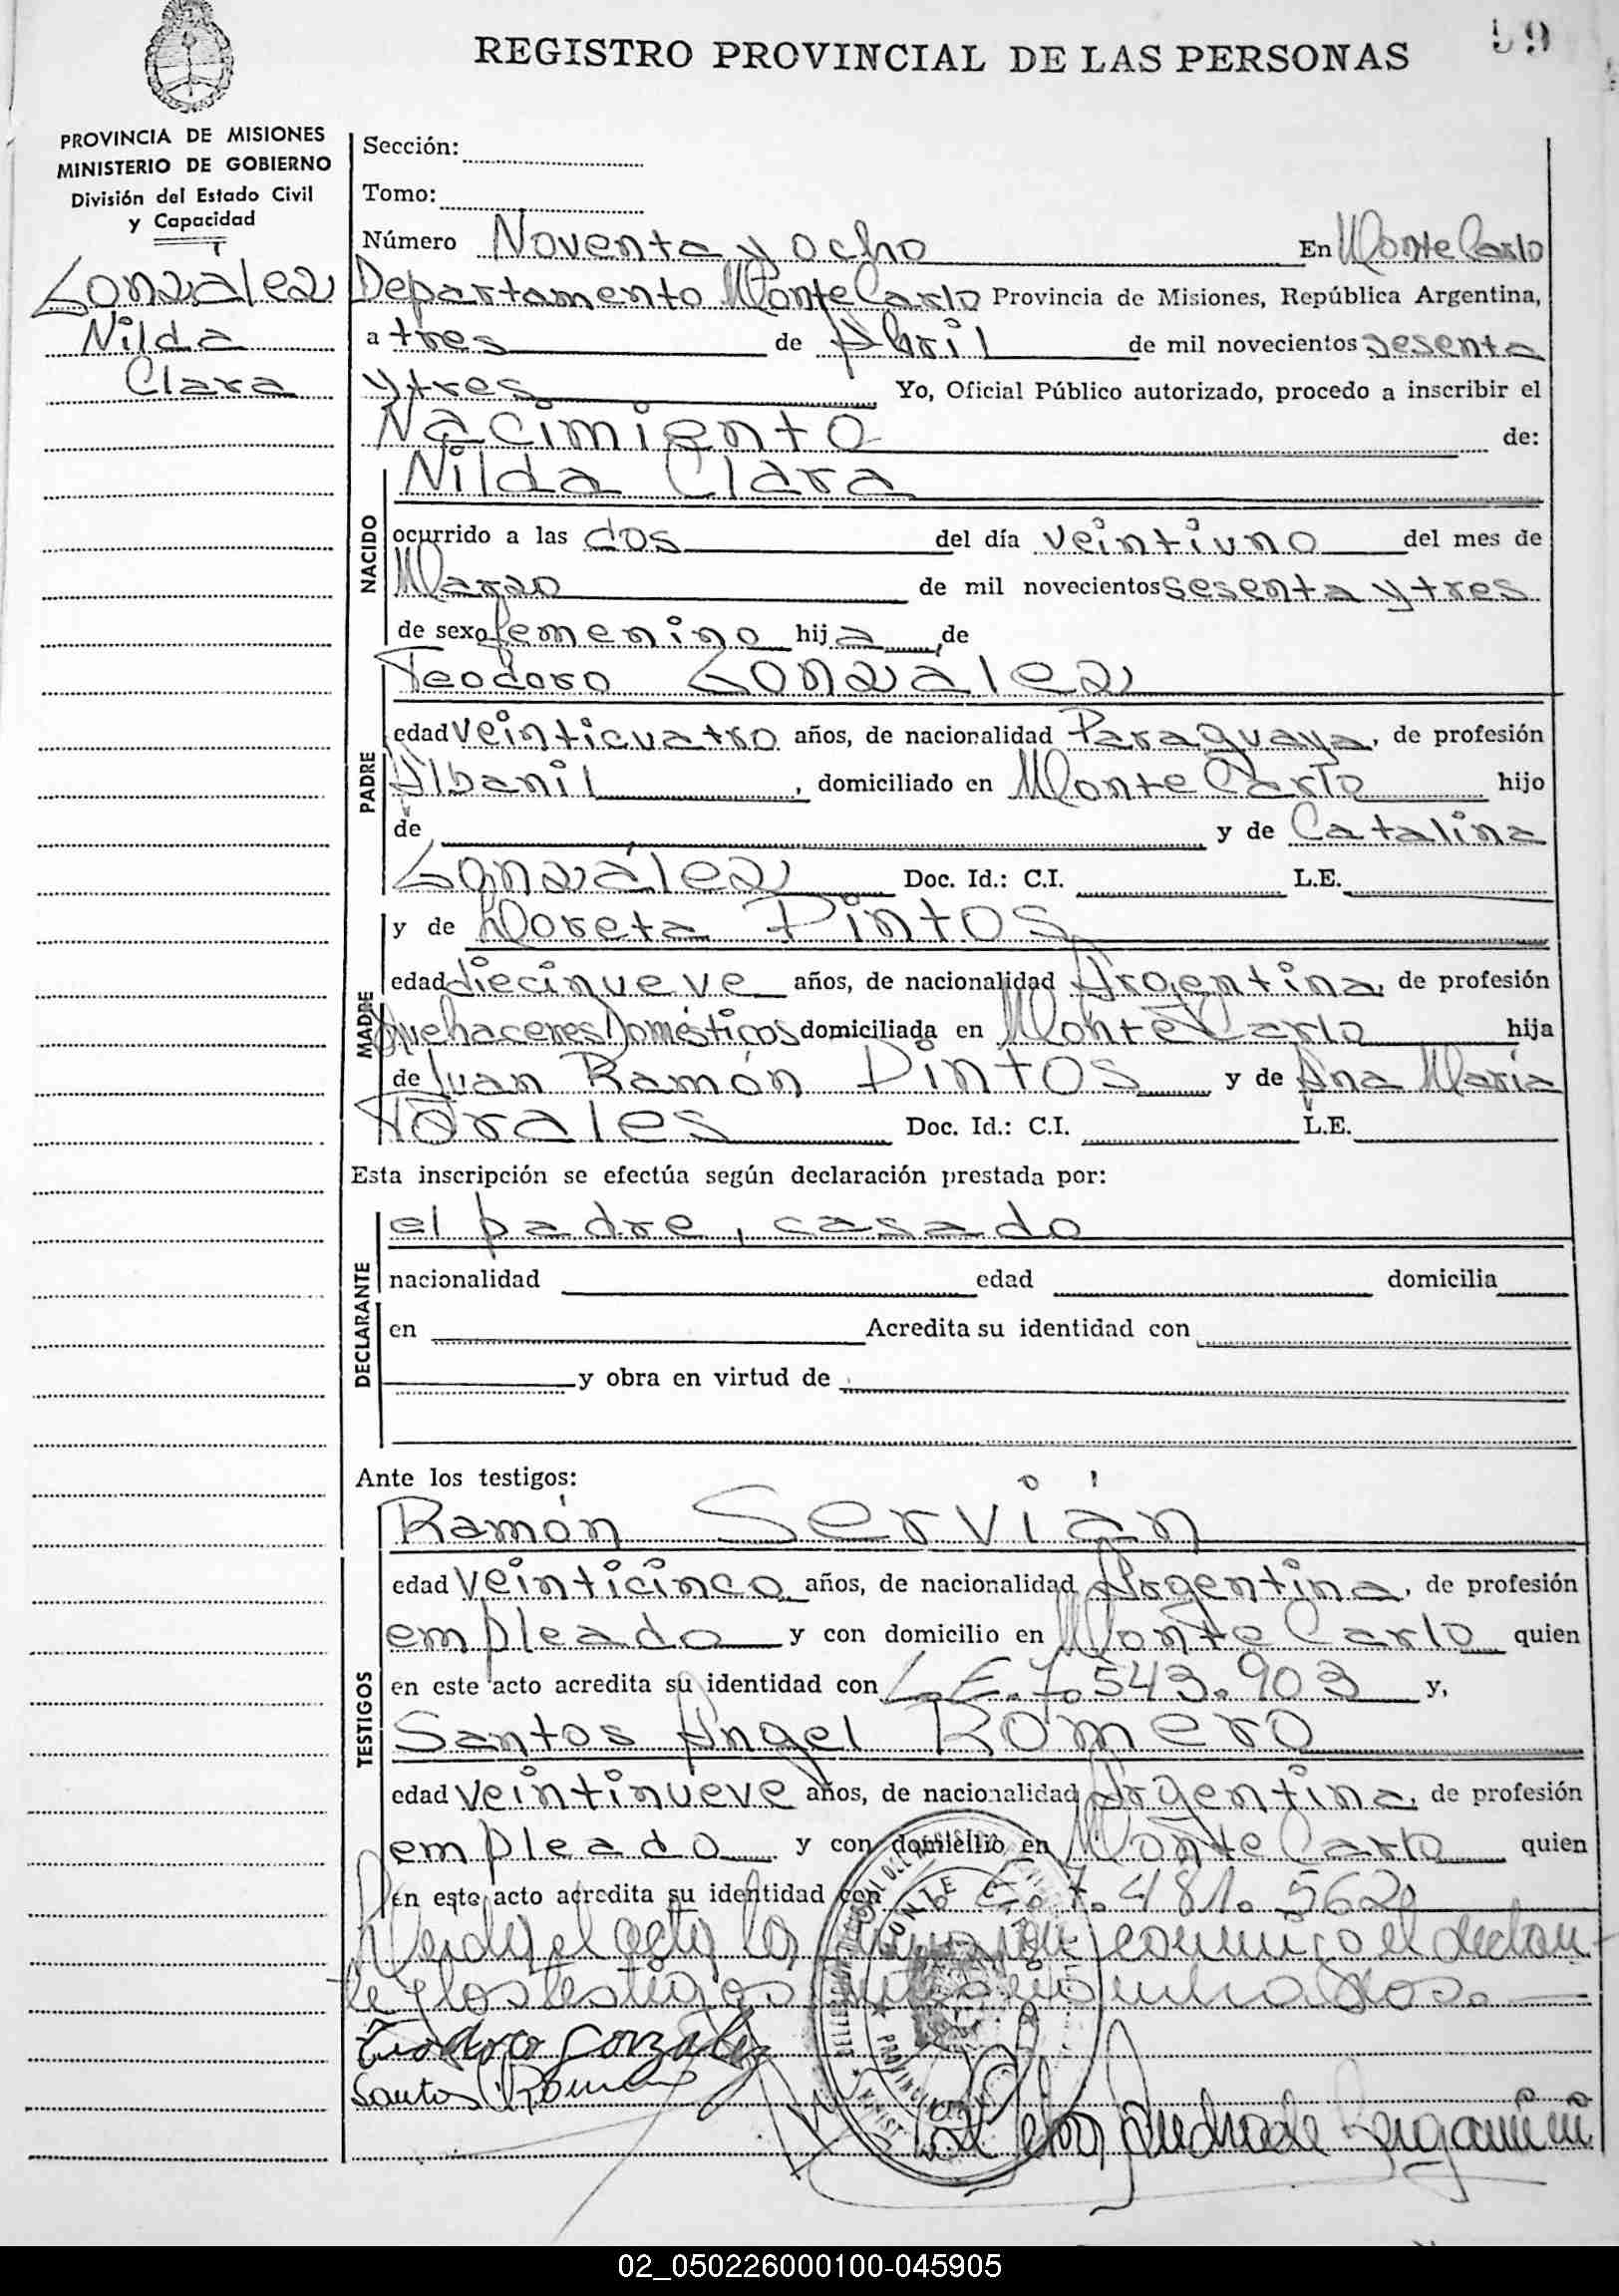 59
REGISTRO PROVINCIAL DE LAS PERSONAS
PROVINCIA DE MISIONES
MINISTERIO DE GOBIERNO
División del Estado Civil
y Capacidad
González
Nilda
Clara
Sección:
Tomo:
Número Noventa y ocho En Monte Carlo
Departamento Monte Carlo Provincia de Misiones, República Argentina,
a tres de Abril de mil novecientos sesenta
y tres Yo, Oficial Público autorizado, procedo a inscribir el
Nacimiento de:
NACIDO
Nilda Clara
ocurrido a las dos del día veintiuno del mes de
Marzo de mil novecientos sesenta y tres
de sexo femenino hija de
PADRE
Teodoro González
edad veinticuatro años, de nacionalidad Paraguaya, de profesión
Albanil, domiciliado en Monte Carlo hijo
de y de Catalina
González Doc. Id.: C.I. L.E.
MADRE
y de Loreta PINTOS
edad diecinueve años, de nacionalidad Argentina, de profesión
Quehaceres Domésticos domiciliada en Monte Carlo hija
de Juan Ramón PINTOS y de Ana Maria
Torales Doc. Id.: C.I. L.E.
Esta inscripción se efectúa según declaración prestada por:
DECLARANTE
el padre, casado
nacionalidad edad domicilia
en Acredita su identidad con
y obra en virtud de
Ante los testigos:
TESTIGOS
Ramón Servián
edad veinticinco años, de nacionalidad Argentina, de profesión
empleado y con domicilio en Monte Carlo quien
en este acto acredita su identidad con L.E.7.543.903 y,
Santos Angel ROMERO
edad veintinueve años, de nacionalidad Argentina, de profesión
empleado y con domicilio en Monte Carlo quien
en este acto acredita su identidad con 7.481.562
el acta la conmigo el declaran-
te y los testigos
MONTE CARLO
PROVINCIA
Teodoro González
Santos Romero
Andrade Bergamini
02_050226000100-045905